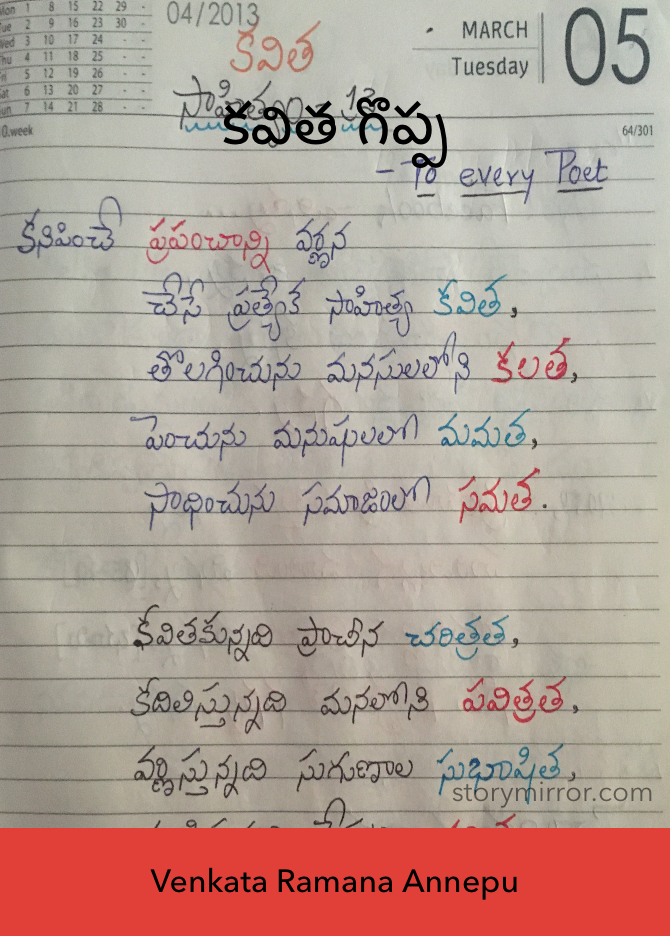 Mon 1 8 15 22 29 -
Tue 2 9 16 23 30 -
Wed 3 10 17 24 - -
Thu 4 11 18 25 - -
Fri 5 12 19 26 - -
Sat 6 13 20 27 - -
Sun 7 14 21 28 - -
04/2013
MARCH
Tuesday
05
64/301
కవిత
సాహిత్యం
కవిత గొప్ప
- To every Poet
కనిపించే ప్రపంచాన్ని వర్ణన
చేసే ప్రత్యేక సాహిత్య కవిత,
తొలగించును మనసులలోని కలత,
పెంచును మనుషులలో మమత,
సాధించును సమాజంలో సమత.
కవితకున్నది ప్రాచీన చరిత్రత,
కదిలిస్తున్నది మనలోని పవిత్రత,
వర్ణిస్తున్నది సుగుణాల సుభాషిత,
storymirror.com
Venkata Ramana Annepu